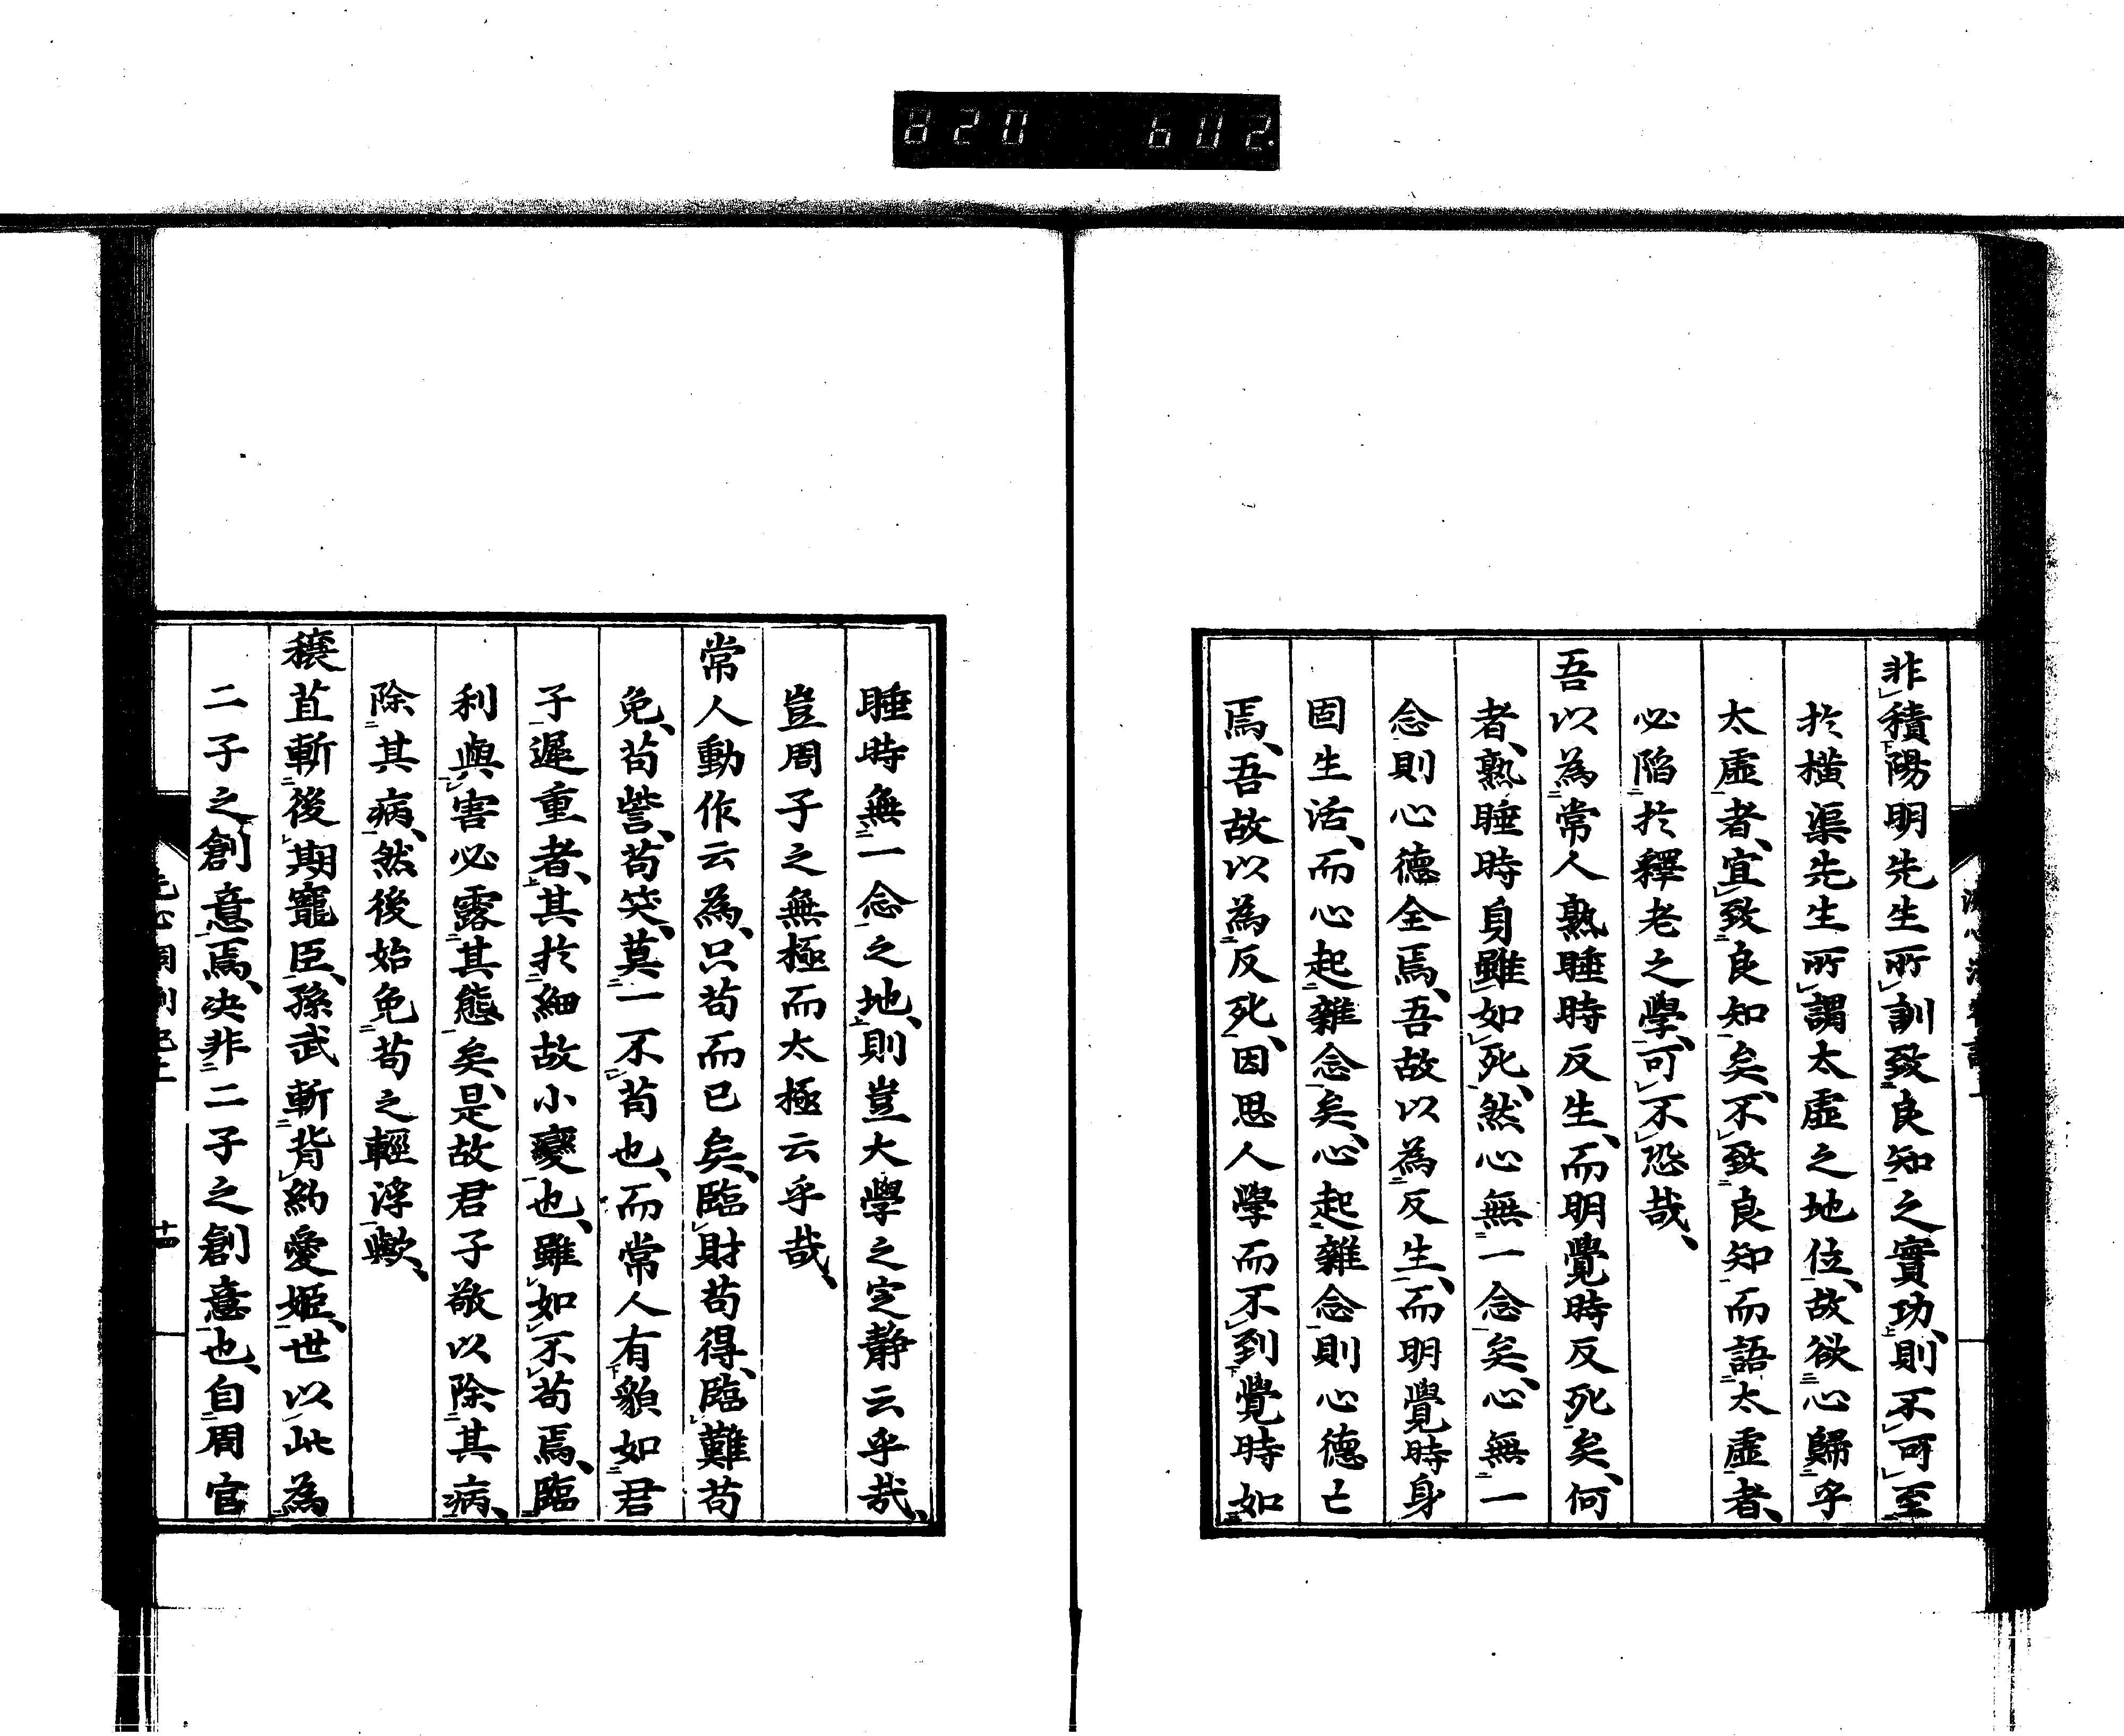 820 602.
非積陽明先生所訓致良知之實功、則不可至
於橫渠先生所謂太虛之地位、故欲心歸乎
太虛者、宜致良知矣、不致良知而語太虛者、
必陷於釋老之學、可不恐哉、
吾以為常人熟睡時反生、而明覺時反死矣、何
者、熟睡時身雖如死、然心無一念矣、心無一
念則心德全焉、吾故以為反生、而明覺時身
固生活、而心起雜念矣、心起雜念則心德亡
焉、吾故以為反死、因思人學而不到覺時如
睡時無一念之地、則豈大學之定靜云乎哉、
豈周子之無極而太極云乎哉、
常人動作云為、只苟而已矣、臨財苟得、臨難苟
免、苟訾、苟笑、莫一不苟也、而常人有貌如君
子遲重者、其於細故小變也、雖如不苟焉、臨
利與害必露其態矣、是故君子敬以除其病、
除其病、然後始免苟之輕浮歟、
穰苴斬後期寵臣、孫武斬背約愛姬、世以此為
二子之創意焉、決非二子之創意也、自周官
十四